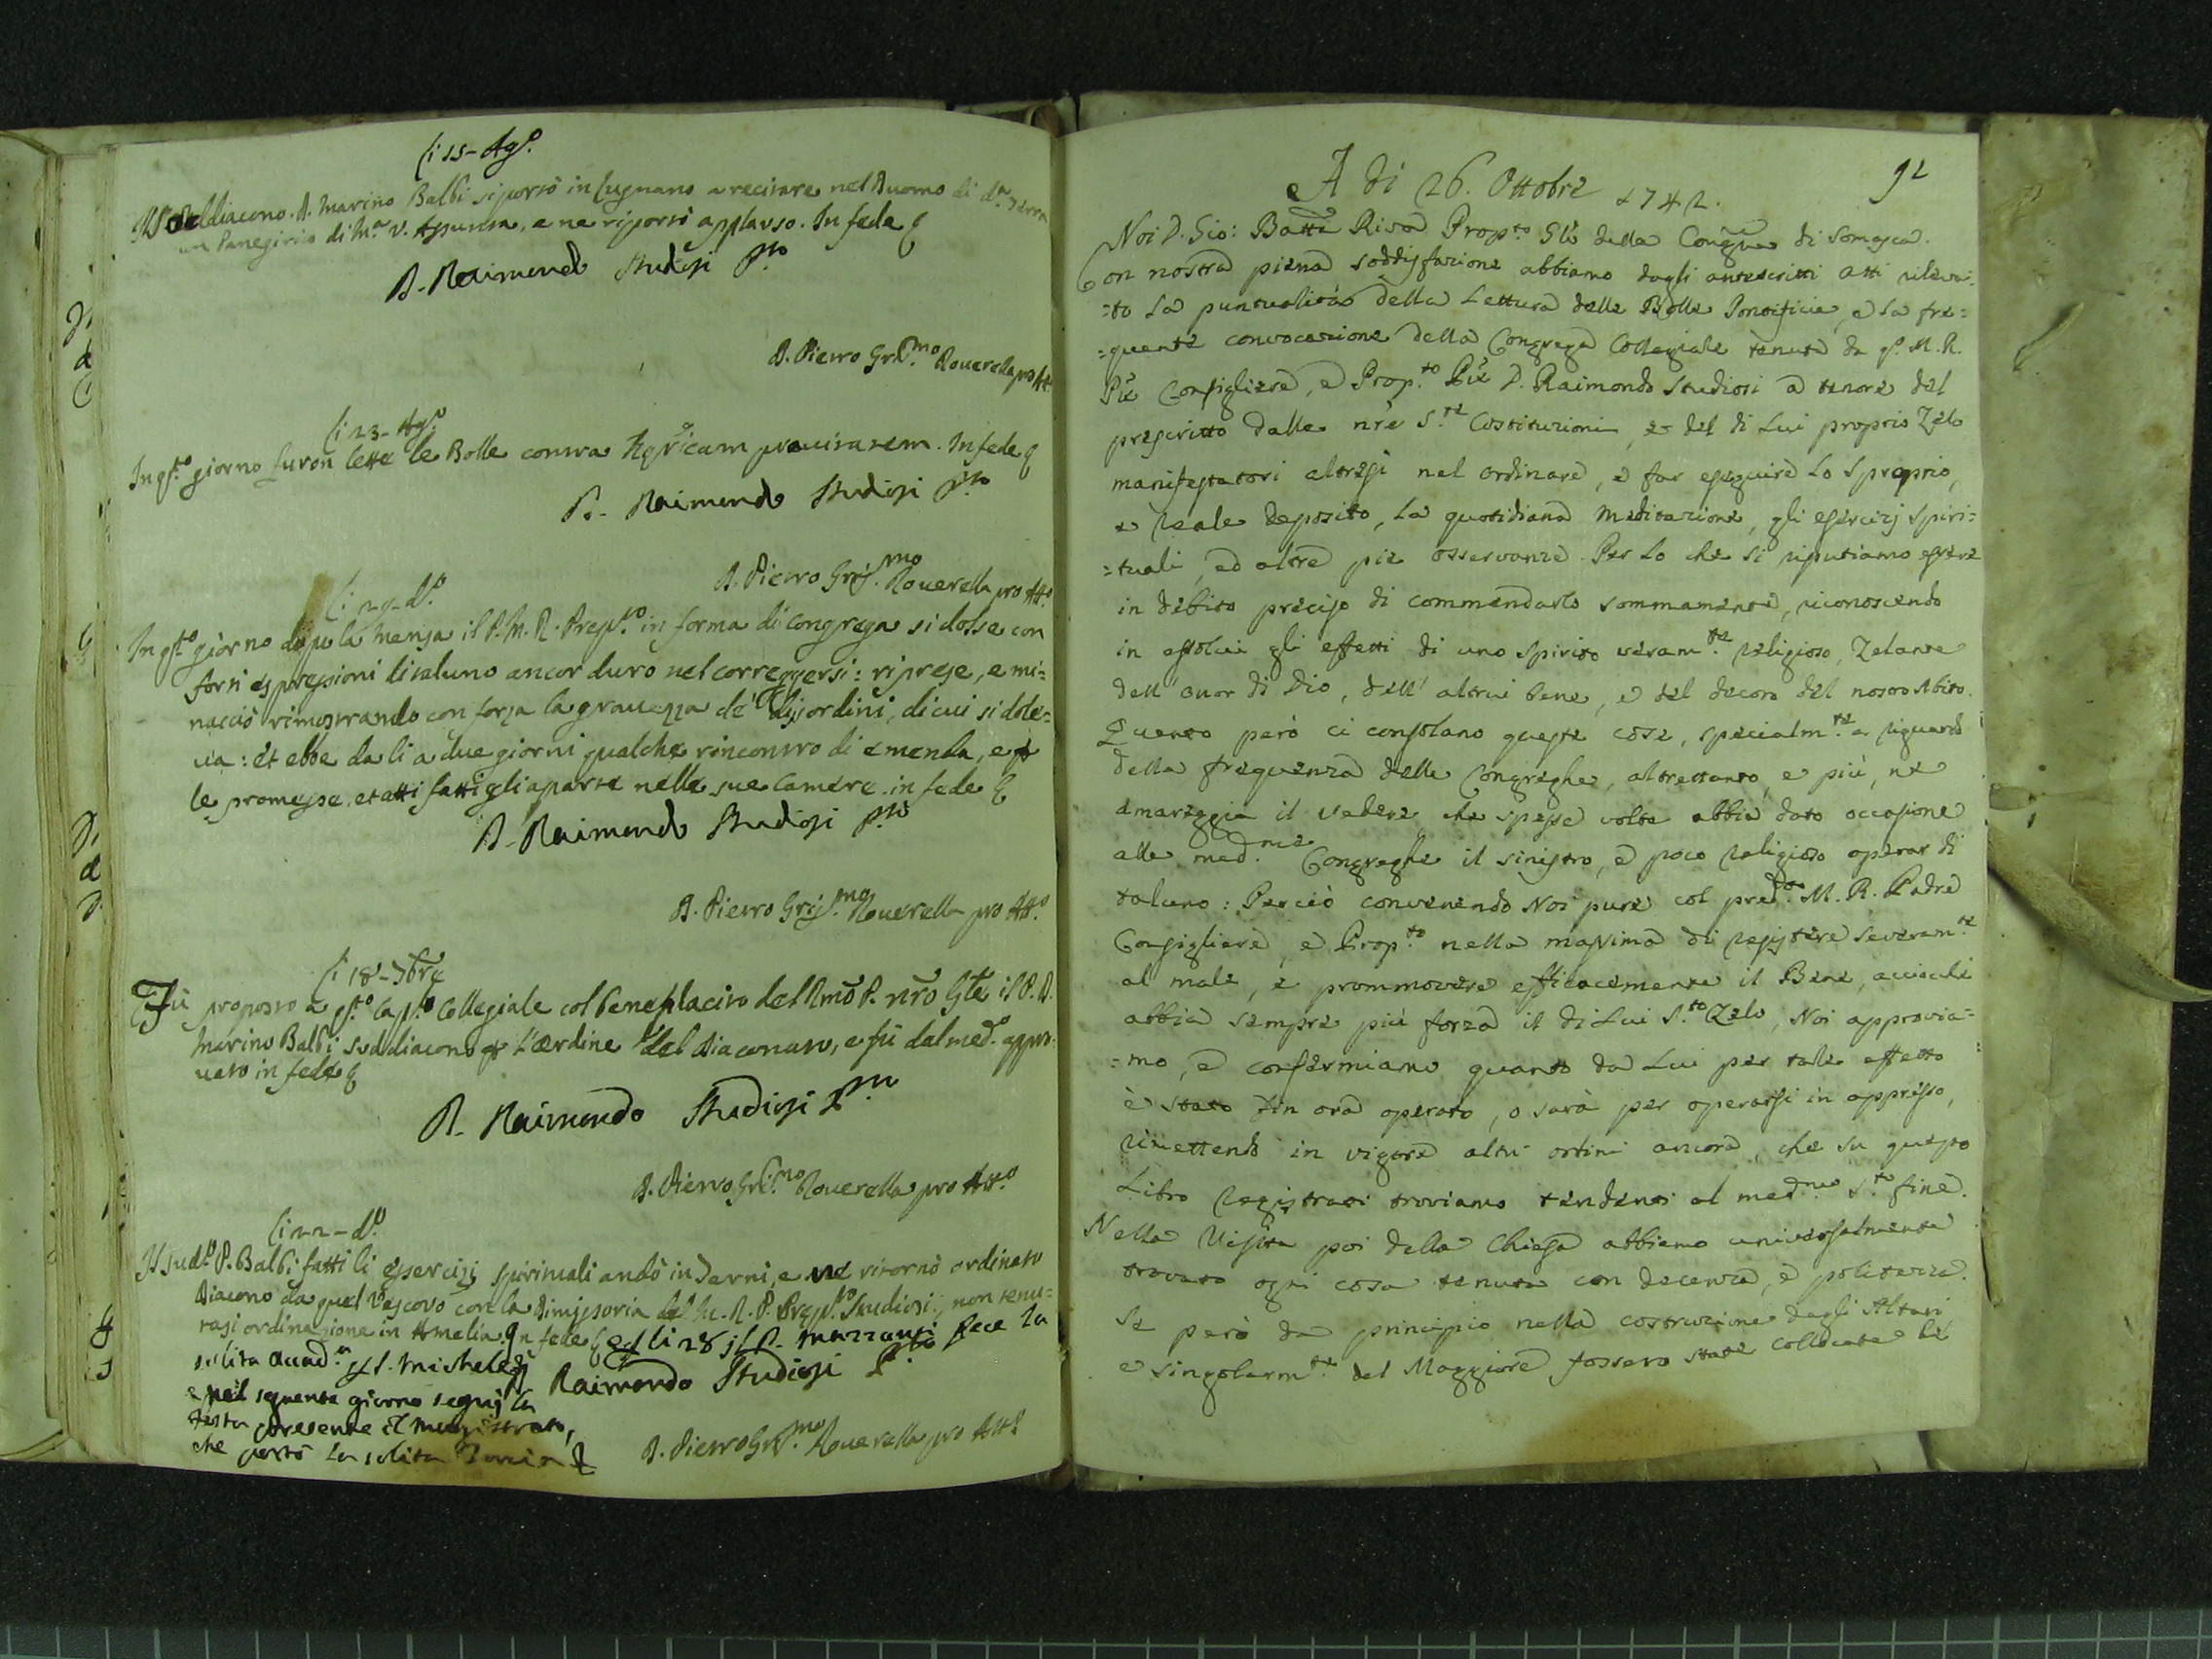 Li 15 - Ag.º
Il Soddiacono D. Marino Balbi si portò in Lugnano a recitare nel Duomo di d.ª Terra
un Panegirico di M.ª V. Assunta, e ne riportò applauso. In fede
D. Raimondo Studiosi P.to
D. Pietro Gris.mo Roverella pro Att.
Li 23 - Ag.º
In q.sto giorno furon lette le Bolle contra pravitatem. In fede
D. Raimondo Studiosi P.to
D. Pietro Gris.mo Roverella pro Att.º
Li 29 - d.º
In q.sto giorno dopo la mensa il P. M. R. Prep.to in forma di congrega si dolse con
forti espressioni di taluno ancor duro nel correggersi: riprese, e mi=
nacciò rimostrando con forza la gravezza de' disordini, di cui si dole=
va: et ebbe da li a due giorni qualche rincontro di emenda, e p
le promesse, et atti fattigli a parte nelle sue Camere. in fede
D. Raimondo Studiosi P.to
D. Pietro Gris.mo Roverella pro Att.º
Li 18 - 7bre
Fù proposto a q.sto Cap.lo Collegiale col beneplacito del Rmo P. nro Gle il P. D.
Marino Balbi suddiacono p l'ordine del Diaconato, e fù dal med.º appro=
vato in fede
D. Raimondo Studiosi P.to
D. Pietro Gris.mo Roverella pro Att.º
Li 22 - d.º
Il sud.º P. Balbi fatti li esercizj spirituali andò in Terni, e ne ritornò ordinato
Diacono da quel Vescovo con la dimissoria del M. R. P. Prep.to Studiosi, non tenu=
tasi ordinazione in Amelia. In fede e li 28 il P. Mazzanti fece la
solita Accad.ª p S. Michele D. Raimondo Studiosi P.to
e nel seguente giorno seguì la
festa presente il Magistrato,
che portò la solita Torcia
D. Pietro Gris.mo Roverella pro Att.º
92
A di 26. Ottobre 1742.
Noi D. Gio: Batta Riva Prop.to Gle della Congne di Somasca.
Con nostra piena soddisfazione abbiamo dagli antescritti atti rileva=
=to la puntualità della Lettura delle Bolle Pontificie, e la fre=
=quente convocazione della Congrega Collegiale tenuta da q.o M. R.
Pre Consigliere, e Prop.to Pre D. Raimondo Studiosi a tenore del
prescritto dalle nre S.te Costituzioni, e del di Lui proprio Zelo
manifestatosi altresì nel ordinare, e far eseguire lo sproprio,
e reale deposito, la quotidiana Meditazione, gli esercizj spiri=
=tuali, ed altre pie osservanze. Per lo che si riputiamo essere
in debito preciso di commendarlo sommamente, riconoscendo
in essolui gli effetti di uno spirito veram.te religioso, Zelante
dell'onor di Dio, dell'altrui bene, e del decoro del nostro Abito.
Quanto però ci consolano queste cose, specialm.te a riguardo
della frequenza delle Congreghe, altrettanto, e più, ne
amareggia il vedere, che spesse volte abbia dato occasione
alle med.me Congreghe il sinistro, e poco religioso operar di
taluno: Perciò convenendo Noi pure col pred.to M. R. Padre
Consigliere, e Prop.to nella massima di resistere severam.te
al male, e prommovere efficacemente il Bene, acciochè
abbia sempre più forza il di Lui S.to Zelo, Noi approvia=
=mo, e confermiamo quanto da Lui per tale effetto
è stato fin ora operato, o sarà per operarsi in appresso,
rimettendo in vigore altri ordini ancora, che su questo
Libro registrati troviamo tendenti al med.mo S.to fine.
Nella Visita poi della Chiesa abbiamo universalmente
trovato ogni cosa tenuta con decenza, e politezza.
Se però da principio nella costruzione degli Altari
e singolarm.te del Maggiore fossero state collocate le